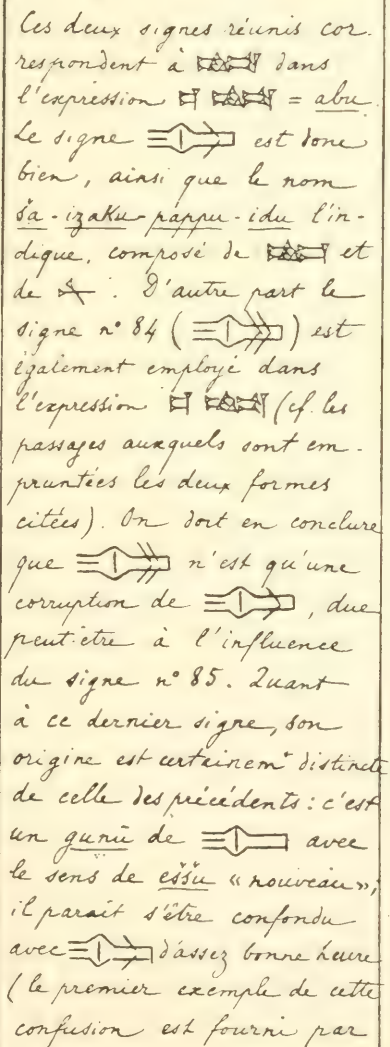 Ces deux signes réunis cor-
respondent à dans
l'expression = abu.
Le signe est donc
bien, ainsi que le nom
ša-izaku-pappu-idu l'in-
dique, composé de et
de . D'autre part le
signe n° 84 ( ) est
également employé dans
l'expression (cf. les
passages auxquels sont em-
pruntées les deux formes
citées). On doit en conclure
que n'est qu'une
corruption de , due
peut-être à l'influence
du signe n° 85. Quant
à ce dernier signe, son
origine est certainemt distincte
de celle des précédents : c'est
un gunū de avec
le sens de eššu « nouveau »;
il paraît s'être confondu
avec d'assez bonne heure
(le premier exemple de cette
confusion est fourni par